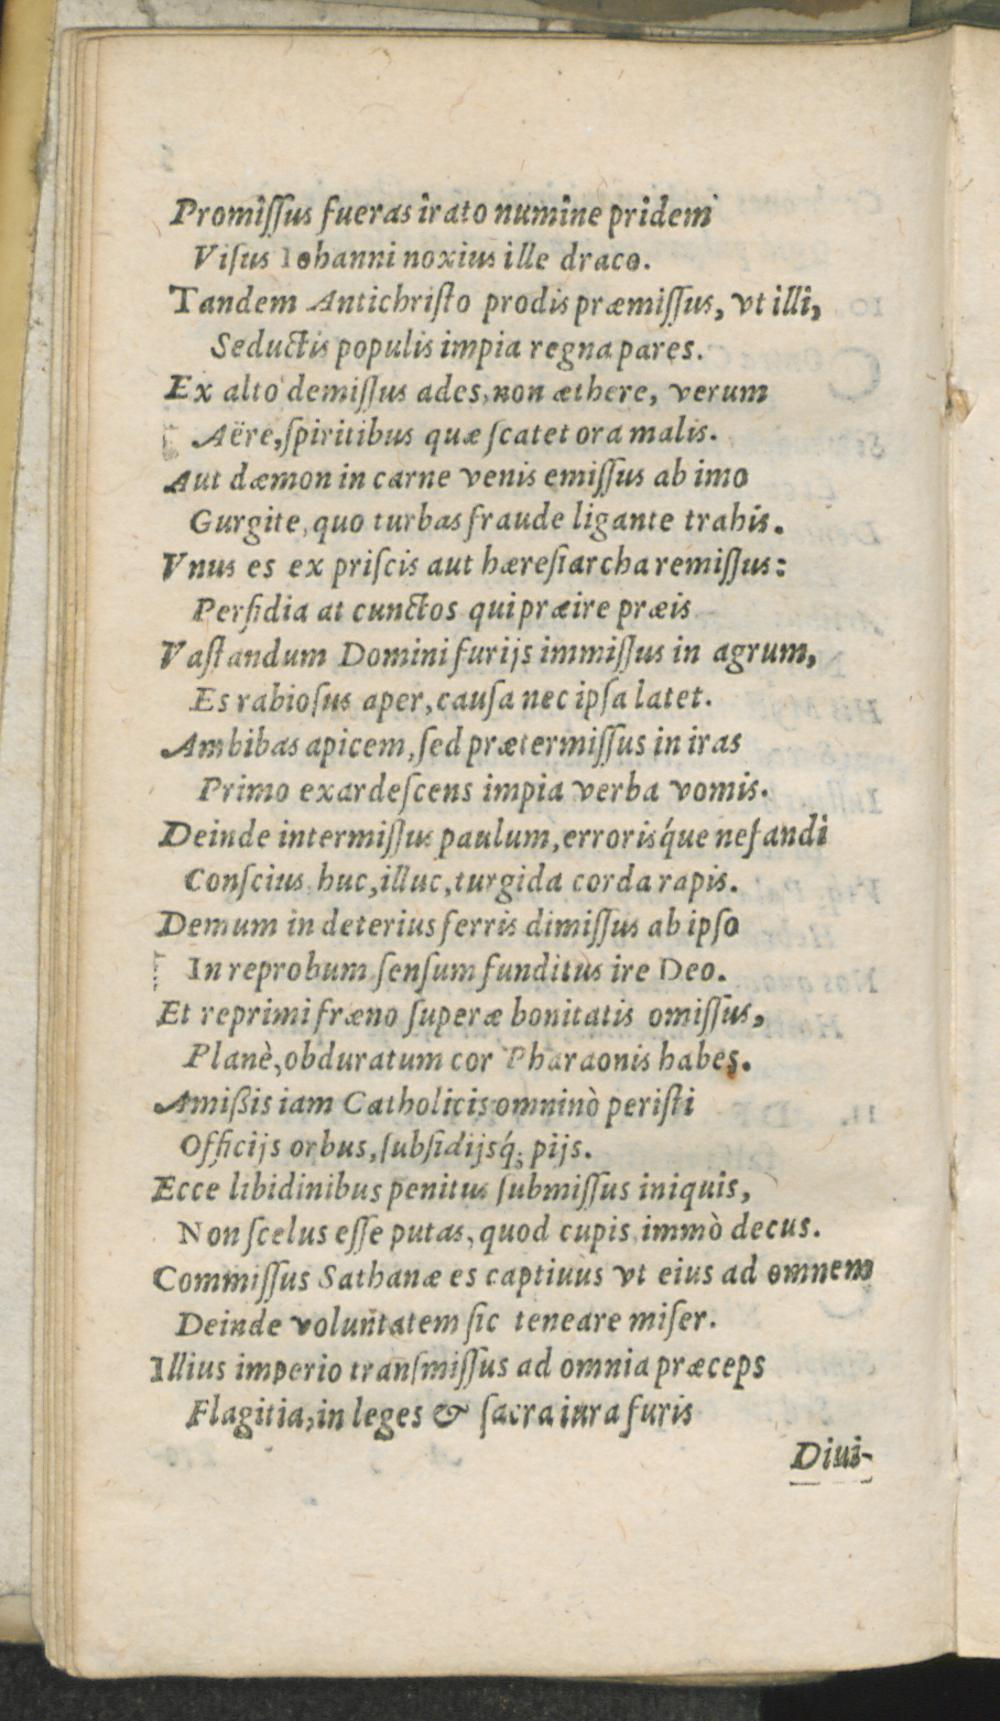 Promiſſus fueras irato numine pridem
Viſus Iohanni noxius ille draco.
Tandem Antichriſto prodis præmiſſus, vt illi,
Seductis populis impia regna pares.
Ex alto demiſſus ades, non æthere, verum
Aëre, ſpiritibus quæ ſcatet ora malis.
Aut dæmon in carne venis emiſſus ab imo
Gurgite, quo turbas fraude ligante trahis.
Vnus es ex priſcis aut hæreſiarcha remiſſus:
Perfidia at cunctos qui præire præis
Vaſtandum Domini furijs immiſſus in agrum,
Es rabioſus aper, cauſa nec ipſa latet.
Ambibas apicem, ſed prætermiſſus in iras
Primo exardeſcens impia verba vomis.
Deinde intermiſſus paulum, errorisq́ue nefandi
Conſcius, huc, illuc, turgida corda rapis.
Demum in deterius ferris dimiſſus ab ipſo
In reprobum ſenſum funditus ire Deo.
Et reprimi fræno ſuperæ bonitatis omiſſus,
Planè, obduratum cor Pharaonis habes.
Amißis iam Catholicis omninò periſti
Officijs orbus, ſubſidijsq́; pijs.
Ecce libidinibus penitus ſubmiſſus iniquis,
Non ſcelus eſſe putas, quod cupis immò decus.
Commiſſus Sathanæ es captiuus vt eius ad omnem
Deinde voluntatem ſic teneare miſer.
Illius imperio tranſmiſſus ad omnia præceps
Flagitia, in leges & ſacra iura furis
Diui-